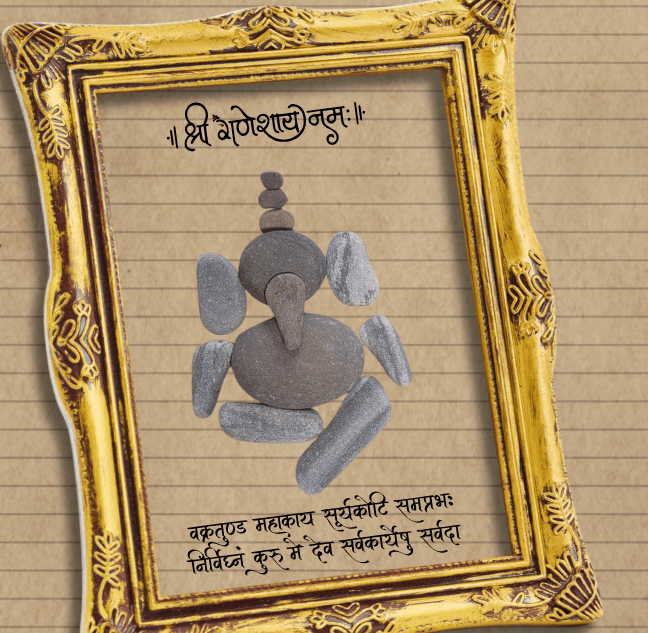 ॥ श्री गणेशाय नमः ॥
वक्रतुण्ड महाकाय सूर्यकोटि समप्रभः
निर्विघ्नं कुरु मे देव सर्वकार्येषु सर्वदा